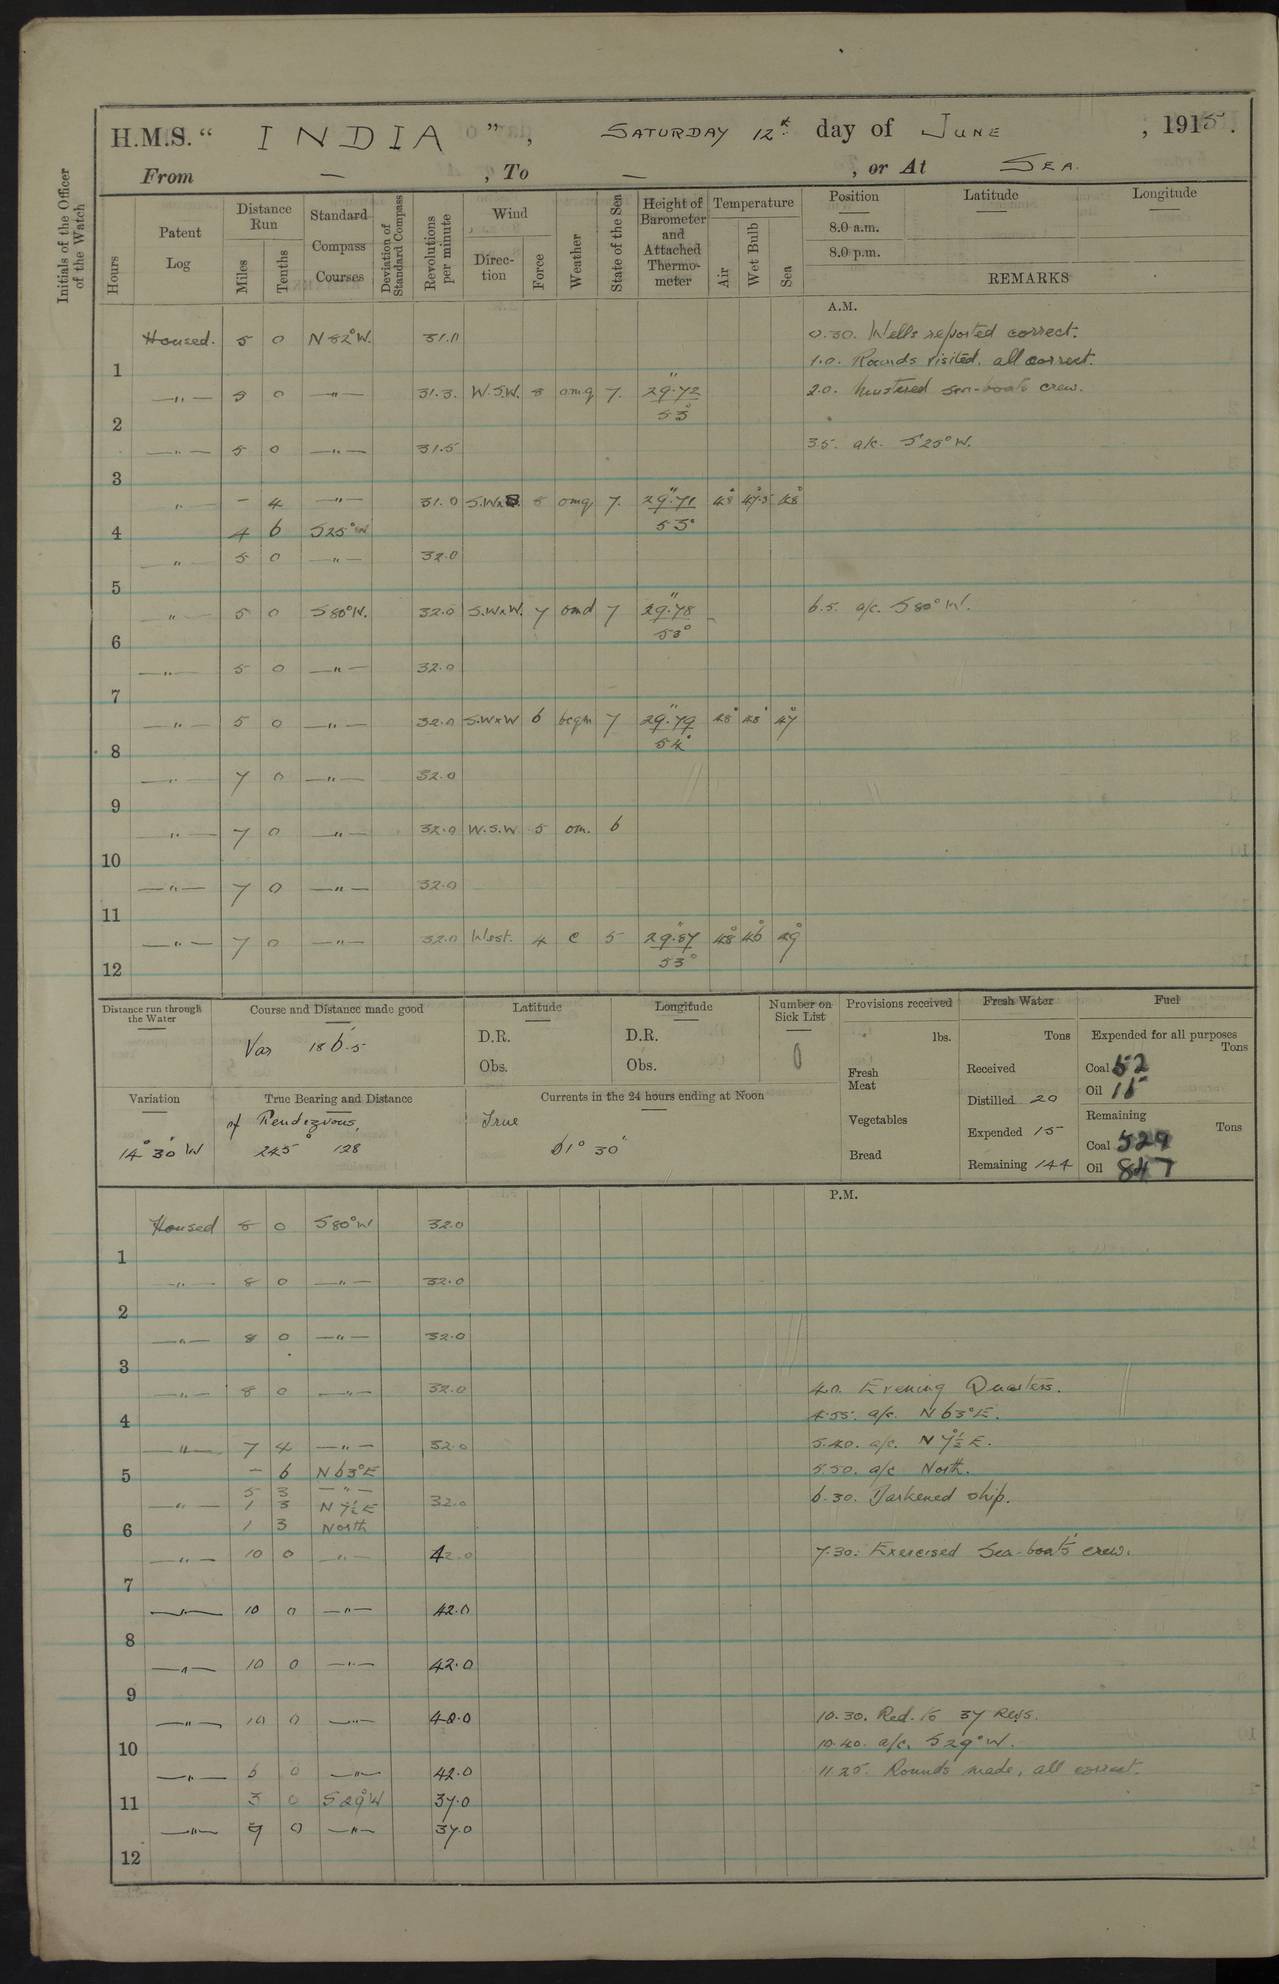 H.M.S. " INDIA ", SATURDAY 12th day of JUNE, 1915.
From — , To — , or At SEA.
Initials of the Officer of the Watch
Hours
Patent Log
Distance Run
Miles
Tenths
Standard Compass Courses
Deviation of Standard Compass
Revolutions per minute
Wind
Direction
Force
Weather
State of the Sea
Height of Barometer and Attached Thermometer
Temperature
Air
Wet Bulb
Sea
Position
8.0 a.m.
8.0 p.m.
Latitude
Longitude
REMARKS
A.M.
Housed. 5 0 N 82° W. 31.0 0.30. Wells reported correct.
1 1.0. Rounds visited, all correct.
—"— 5 0 —"— 31.3. W.S.W. 8 omq 7. 29.72 2.0. Mustered sea-boats crew.
2 53°
—"— 5 0 —"— 31.5 3.5. a/c. S 25° W.
3
" — 4 —"— 31.0 8 omq 7. 29.71 48° 47.5 48°
4 4 6 S25°W 53°
" 5 0 —"— 32.0
5
" 5 0 S 80° W. 32.0 S.WxW. 7 omd 7 29.78 6.5. a/c. S 80° W.
6 53°
—"— 5 0 —"— 32.0
7
—"— 5 0 —"— 32.0 S.WxW 6 bcqm 7 29.79 48° 48° 47°
8 54°
—"— 7 0 —"— 32.0
9
—"— 7 0 —"— 32.0 W.S.W 5 om. 6
10
—"— 7 0 —"— 32.0
11
—"— 7 0 —"— 32.0 West. 4 c 5 29.87 48° 46° 49°
12 53°
Distance run through the Water
Course and Distance made good
Var 186.5
Latitude
D.R.
Obs.
Longitude
D.R.
Obs.
Number on Sick List
0
Provisions received
lbs.
Fresh Meat
Vegetables
Bread
Fresh Water
Tons
Received
Distilled 20
Expended 15
Remaining 144
Fuel
Expended for all purposes
Tons
Coal 52
Oil 15
Remaining
Tons
Coal 529
Oil 847
Variation
14° 30' W
True Bearing and Distance
of Rendezvous.
245° 128
Currents in the 24 hours ending at Noon
True
61° 30'
P.M.
Housed 8 0 S 80° W 32.0
1
—"— 8 0 —"— 32.0
2
—"— 8 0 —"— 32.0
3
—"— 8 0 —"— 32.0 4.0. Evening Quarters.
4 4.55. a/c. N 63° E.
—"— 7 4 —"— 32.0 5.40. a/c. N 7½° E.
5 — 6 N 63° E 5.50. a/c North.
5 3 —"—
—"— 1 3 N 7½ E 32.0 6.30. Darkened ship.
6 1 3 North
—"— 10 0 —"— 42.0 7.30. Exercised Sea-boat's crew.
7
—"— 10 0 —"— 42.0
8
—"— 10 0 —"— 42.0
9
—"— 10 0 —"— 42.0 10.30. Red. to 37 Revs.
10 10.40. a/c. S 29° W.
—"— 6 0 —"— 42.0 11.25. Rounds made, all correct.
11 3 0 S 29° W 37.0
—"— 9 0 —"— 37.0
12